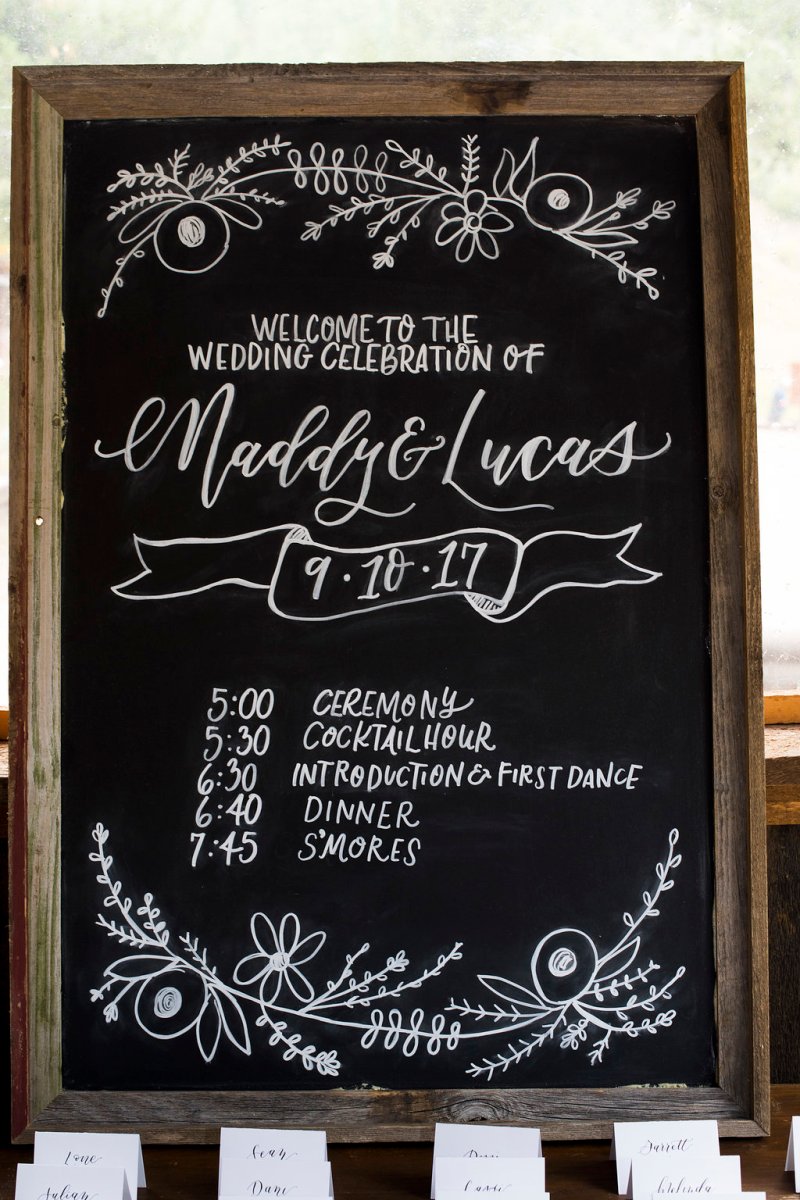 WELCOME TO THE
WEDDING CELEBRATION OF
Maddy & Lucas
9·10·17
5:00 CEREMONY
5:30 COCKTAIL HOUR
6:30 INTRODUCTION & FIRST DANCE
6:40 DINNER
7:45 S'MORES
Sean
Jarrett
Dani
Melinda